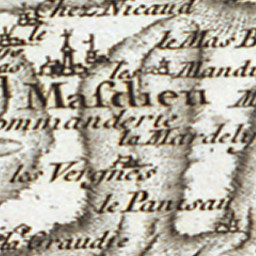 Chez Nicaud
le
le Mas B
les
Mandi
Masdieu
M
ommanderie
la Mardely
los Vergnes
le Pansau
la Graudie